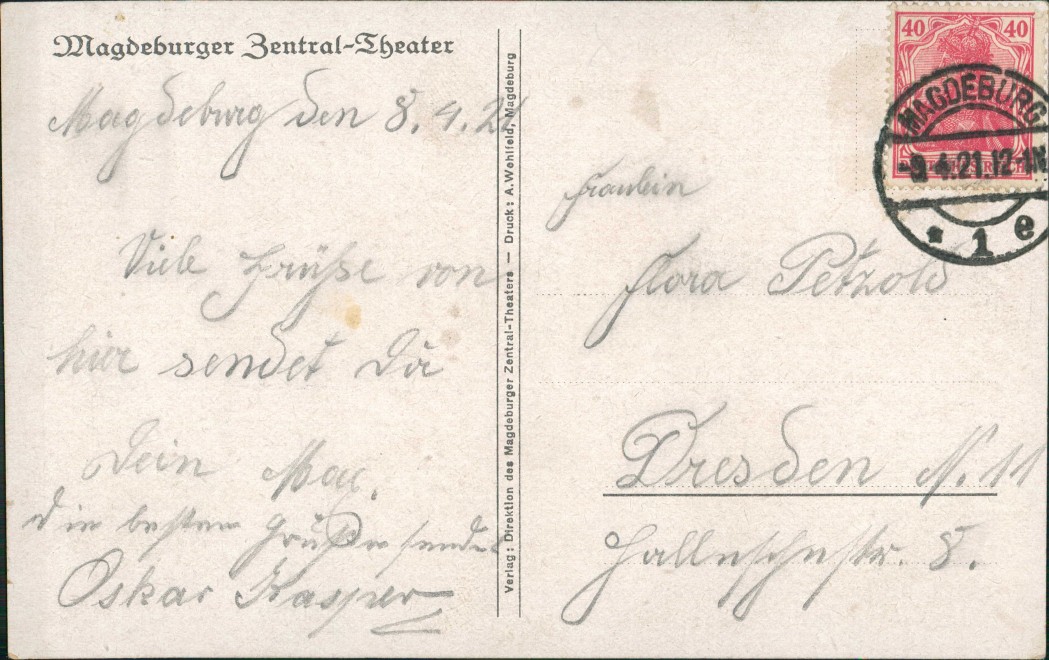 Magdeburger Zentral-Theater
Magdeburg den 8. 4. 21
Viele Grüße von
hier sendet Dir
Dein Max.
Die besten Grüße sendet
Oskar Kasper
Verlag: Direktion des Magdeburger Zentral-Theaters — Druck: A. Wohlfeld, Magdeburg
40 40
MAGDEBURG
-9.4.21.12-1N
* 1 e
Fräulein
Flora Petzold
Dresden N. 11
Hallesche str. 8.